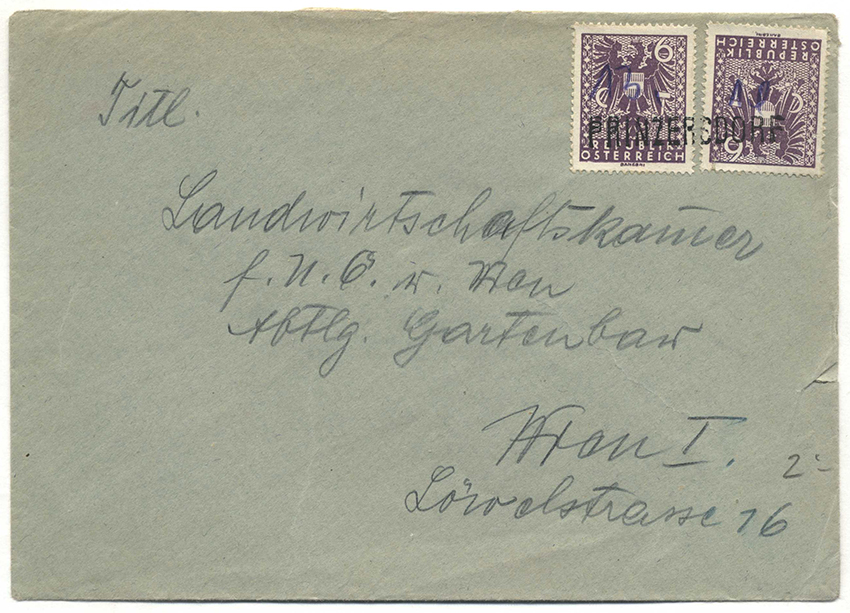 6
REPUBLIK
ÖSTERREICH
REPUBLIK
ÖSTERREICH
6
PRINZERSDORF
Titl.
Landwirtschaftskam̄er
f. N. Ö. u. Wien
Abtlg. Gartenbau
Wien I.
Löwelstrasse 16
2-